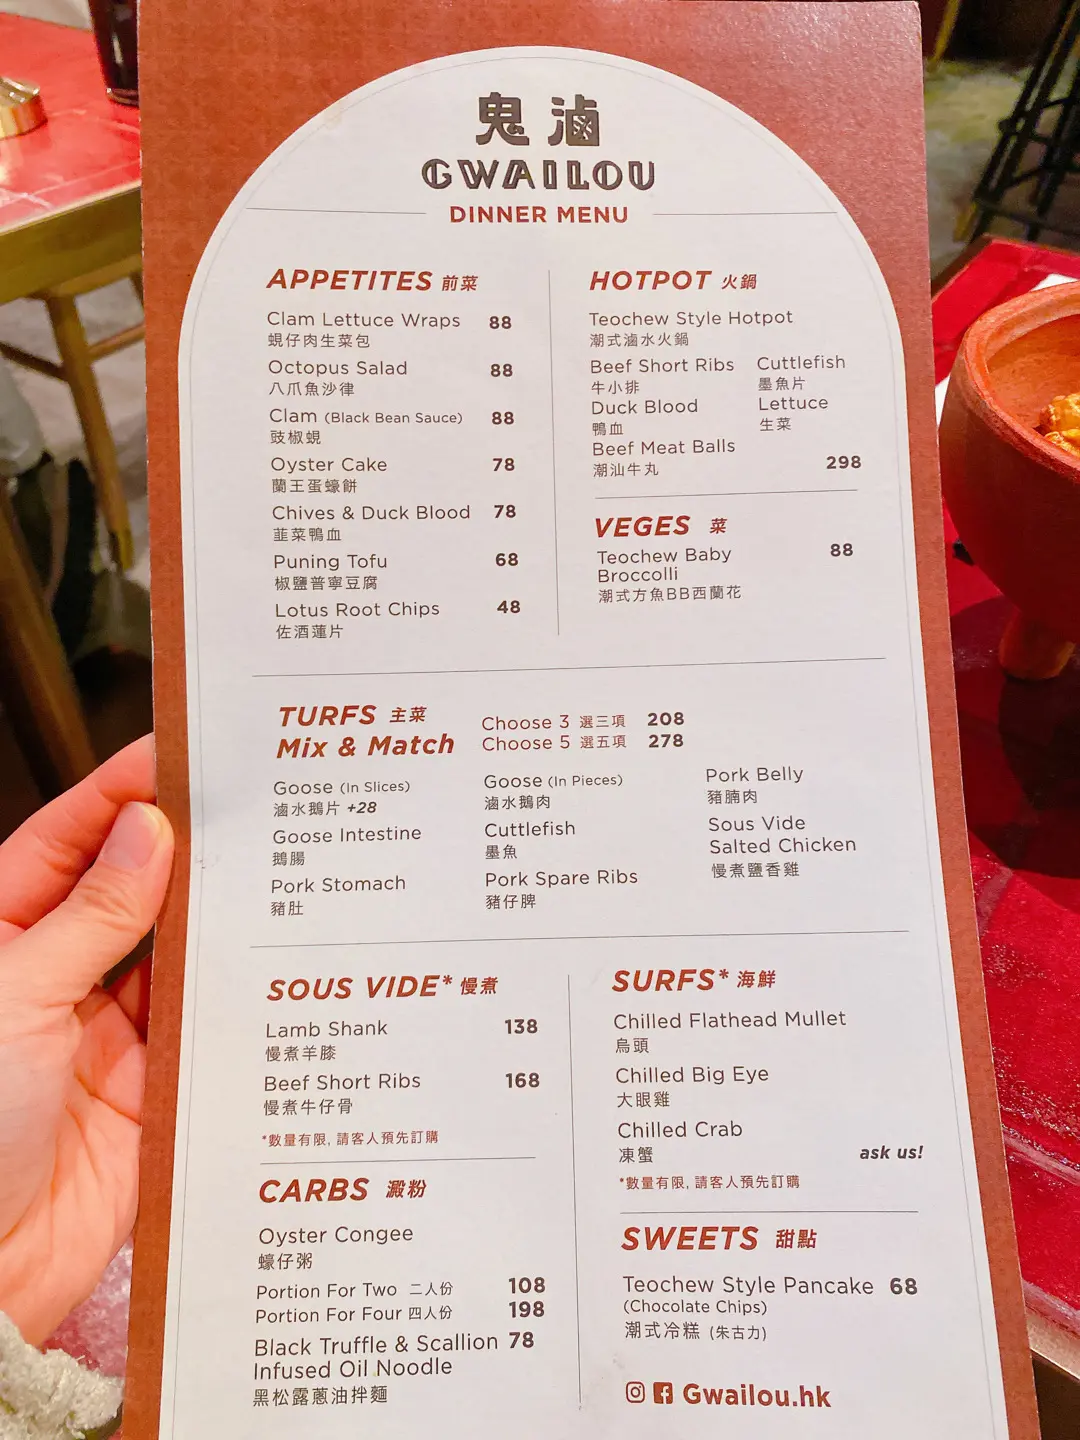 鬼滷
GWAILOU
DINNER MENU
APPETITES 前菜
Clam Lettuce Wraps 88
蜆仔肉生菜包
Octopus Salad 88
八爪魚沙律
Clam (Black Bean Sauce) 88
豉椒蜆
Oyster Cake 78
蘭王蛋蠔餅
Chives & Duck Blood 78
韮菜鴨血
Puning Tofu 68
椒鹽普寧豆腐
Lotus Root Chips 48
佐酒蓮片
HOTPOT 火鍋
Teochew Style Hotpot
潮式滷水火鍋
Beef Short Ribs Cuttlefish
牛小排 墨魚片
Duck Blood Lettuce
鴨血 生菜
Beef Meat Balls
潮汕牛丸 298
VEGES 菜
Teochew Baby 88
Broccolli
潮式方魚BB西蘭花
TURFS 主菜
Mix & Match
Choose 3 選三項 208
Choose 5 選五項 278
Goose (In Slices)
滷水鵝片 +28
Goose Intestine
鵝腸
Pork Stomach
豬肚
Goose (In Pieces)
滷水鵝肉
Cuttlefish
墨魚
Pork Spare Ribs
豬仔脾
Pork Belly
豬腩肉
Sous Vide
Salted Chicken
慢煮鹽香雞
SOUS VIDE* 慢煮
Lamb Shank 138
慢煮羊膝
Beef Short Ribs 168
慢煮牛仔骨
*數量有限, 請客人預先訂購
CARBS 澱粉
Oyster Congee
蠔仔粥
Portion For Two 二人份 108
Portion For Four 四人份 198
Black Truffle & Scallion 78
Infused Oil Noodle
黑松露蔥油拌麵
SURFS* 海鮮
Chilled Flathead Mullet
烏頭
Chilled Big Eye
大眼雞
Chilled Crab
凍蟹 ask us!
*數量有限, 請客人預先訂購
SWEETS 甜點
Teochew Style Pancake 68
(Chocolate Chips)
潮式冷糕 (朱古力)
Gwailou.hk